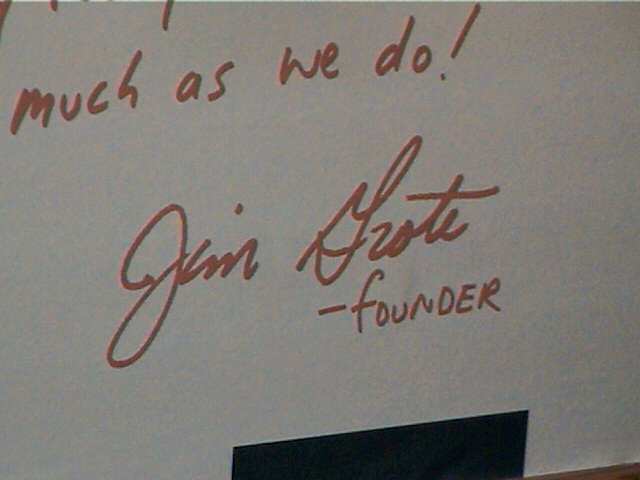 much as we do!
Jim Grote
-fOUNDER